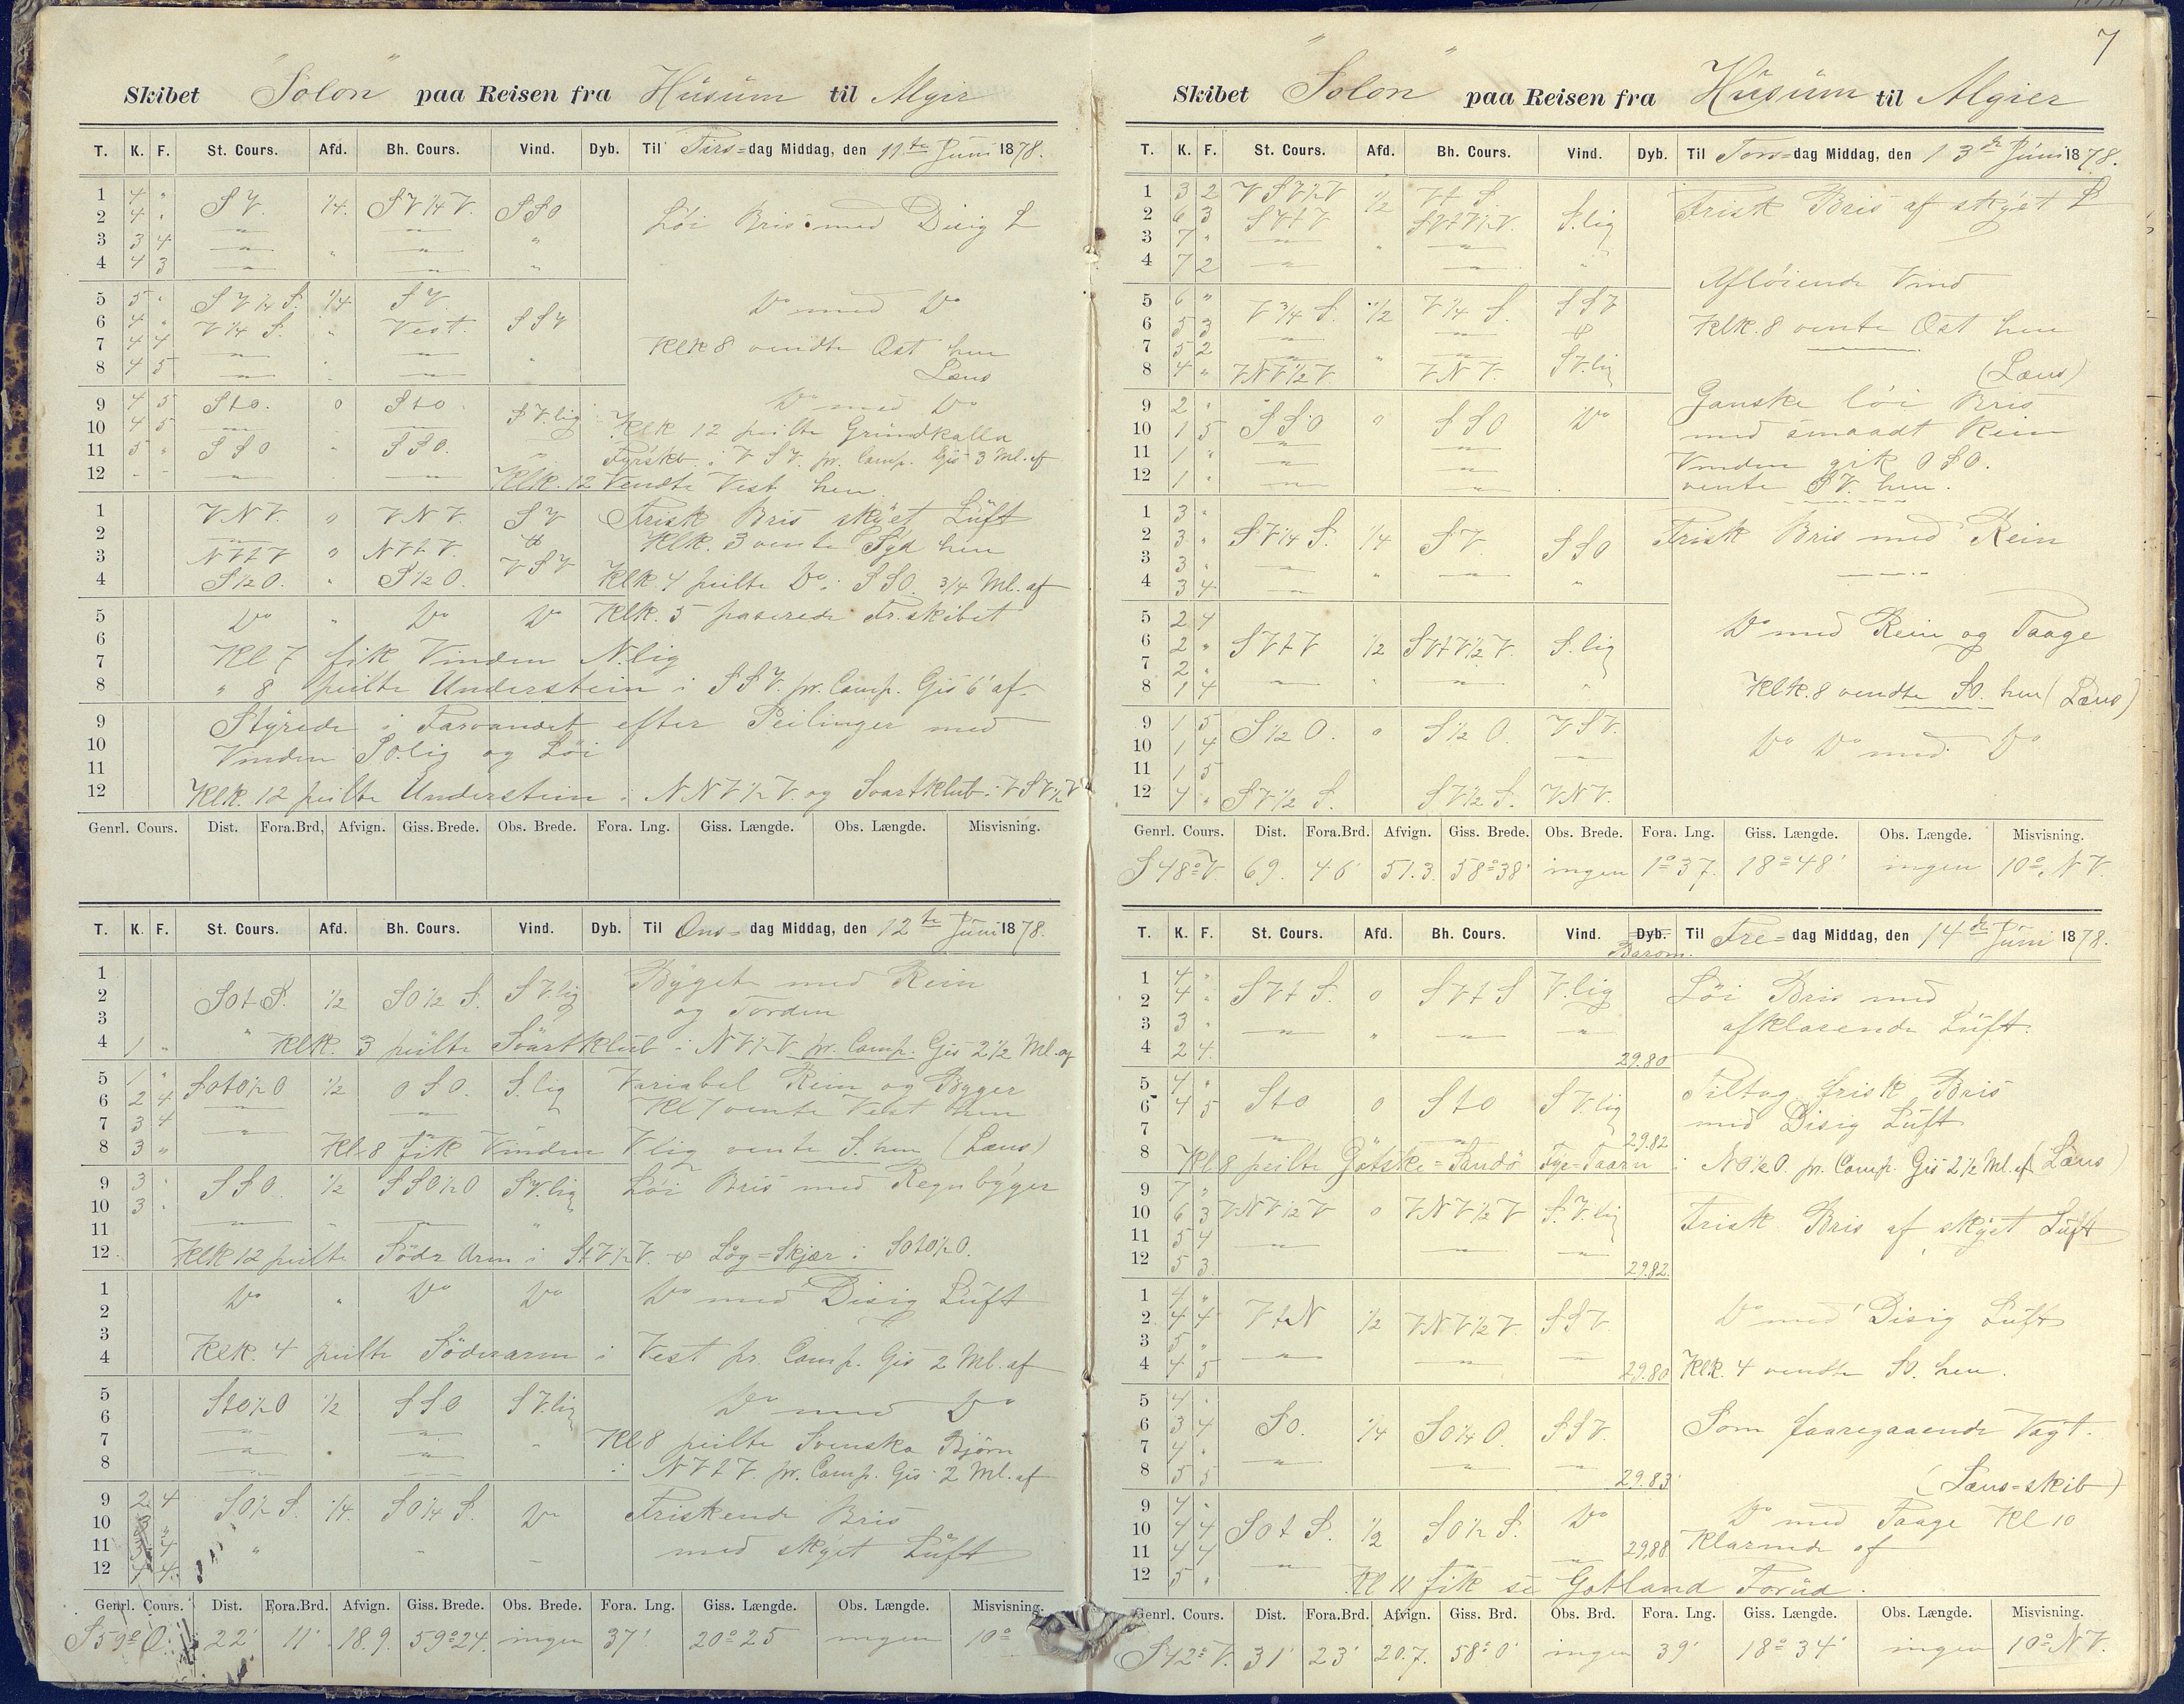 Skibet "Solon" paa Reisen fra Hüsüm til Algir
T. K. F. St. Cours. Afd. Bh. Cours. Vind. Dyb. Til Tirs=dag Middag, den 11te Juni 1878.
1 4 " S V. 1/4. S V 1/4 V. S S O
2 4 " Löi Bris med Disig L
3 3 4
4 4 3
5 5 " S V 1/4 S. 1/4 S V. Do med Do
6 4 " V 1/4 S. " Vest. S S V
7 4 4 Klk 8 vendte Ost hen
8 4 5 Læns
9 4 5 Sto. o Sto. S V.lig Do med Do
10 4 5 Klk 12 peilte Grundkalla
11 5 " S S O " S S O. Fyrskb. i V S V. pr. Comp. Gis 3 Ml. af
12 Klk. 12 Vendte Vest hen
1 V N V. " V N V. S V Frisk Bris skyet Lüft
2 Klk. 3 vente Syd hen
3 N V t V " N V t V. V S V
4 S 1/2 O. " S 1/2 O. Klk. 4 peilte Do i S S O. 3/4 Ml. af
5 Do " Do Do Klk. 5 paserede Fr. skibet
6
7 Kl 7 fik Vinden N.lig
8 " 8 peilte Understein i S S V. pr. Comp. Gis 6' af.
9 Styrede i Farvandet efter Peilinger med
10 Vinden So.lig og Löi
11
12 Klk. 12 peilte Understein i N N V 1/2 V. og Svartklub i V S V 1/2 V
Genrl. Cours. Dist. Fora.Brd, Afvign. Giss. Brede. Obs. Brede. Fora. Lng. Giss. Længde. Obs. Længde. Misvisning.
T. K. F. St. Cours. Afd. Bh. Cours. Vind. Dyb. Til Ons= dag Middag, den 12te Juni 1878.
1 Byget med Rein
2 SotS. 1/2 SO 1/2 S. S V.lig
3 og Torden
4 1 " Klk. 3 peilte Svartklub i N V 1/2 V pr. Comp. Gis 2 1/2 Ml. af
5 1 " Soto 1/2 O 1/2 O S O. S.lig Variabel Rein og Byger
6 2 4 Kl 7 vente Vest hen
7 3 4
8 3 " Kl 8 fik Vinden V lig vente S. hen (Læns)
9 3 " S S O. 1/2 S S O 1/2 O S V.lig Löi Bris med Regnbyger
10 3 "
11
12 Klk 12 peilte Södr Arm i S t V 1/2 V. & Lög=Skjær i Soto 1/2 O.
1 Do " Do Do Do med Disig Lüft
2
3
4 Klk. 4 peilte Söderarm i Vest pr. Comp. Gis 2 Ml. af
5 Sto 1/2 O 1/2 S S O S V.lig Do med Do
6
7 Kl 8 peilte Svenska Björn
8 i N V t V. pr. Comp. Gis 2 Ml. af
9 2 4 SO 1/2 S. 1/4. SO 1/4 S. Do Friskende Bris
10
11 med skyet Lüft
12 4 4
Genrl. Cours. Dist. Fora.Brd. Afvign. Giss. Brede. Obs. Brede. Fora. Lng. Giss. Længde. Obs. Længde. Misvisning.
S 59° O. 22' 11' 18.9. 59°24 ingen 37'. 20°25 ingen 10°
7
Skibet "Solon" paa Reisen fra Hüsüm til Algier
T. K. F. St. Cours. Afd. Bh. Cours. Vind. Dyb. Til Tors=dag Middag, den 13de Juni 1878.
1 3 2 V S V 1/2 V 1/2 V t S. Frisk Bris af skyet L
2 6 3 S V t V S V t V 1/2 V. S.lig
3 7 "
4 7 2 Aflöiende Vind
5 6 " V 3/4 S. 1/2 V 1/4 S. S S V
6 5 3 & Klk. 8 vente Ost hen
7 5 2
8 4 " V N V 1/2 V V N V. S V.lig (Læns)
9 2 " S S O o S S O Do Ganske löi Bris
10 1 5 med smaadt Rein
11 1 " Vinden gik O S O.
12 1 " vente S V. hen.
1 3 " Frisk Bris med Rein
2 3 " S V 1/4 S. 1/4 S V. S S O
3 3 "
4 3 4
5 2 4 Do med Rein og Taage
6 2 " S V t V 1/2 S V t V 1/2 V. S.lig
7 2 "
8 1 4 Klk. 8 vendte So. hen (Læns)
9 1 5 S 1/2 O. o S 1/2 O. V S V.
10 1 4 Do Do med Do
11 1 5
12 4 " S V 1/2 S. S V 1/2 S. V N V.
Genrl. Cours. Dist. Fora.Brd. Afvign. Giss. Brede. Obs. Brede. Fora. Lng. Giss. Længde. Obs. Længde. Misvisning.
S 48° V. 69. 46' 51.3. 58°38' ingen 1°37. 18°48' ingen 10° N V.
T. K. F. St. Cours. Afd. Bh. Cours. Vind. Dyb. Barom. Til Fre= dag Middag, den 14de Juni 1878.
1 4 " S V t S. o S V t S V.lig Löi Bris med
2 4 "
3 3 " afklarende Lüft.
4 2 4 29.80
5 4 " Sto o Sto S V.lig Tiltog frisk Bris
6 4 5 med Disig Lüft
7 29.82
8 Kl 8 peilte Gotske=Sandö Fyr=Taarn i N O 1/2 O. pr. Comp. Gis 2 1/2 Ml. af (Læns)
9 7 "
10 6 3 V N V 1/2 V o V N V 1/2 V S V.lig Frisk Bris af skyet Lüft
11 5 4
12 5 3 29.82.
1 4 "
2 4 4 V t N 1/2 V N V 1/2 V. S S V. Do med Disig Lüft
3 5 "
4 4 5 29.80 Klk. 4 vendte So. hen.
5 4 "
6 3 4 So. 1/4 So 1/4 O. S S V. Som foaregaaende Vagt.
7 4 "
8 5 5 29.83 (Læns=skib)
9 4 "
10 4 4 So t S. 1/2 SO 1/2 S. Do Do med Taage Kl 10
11 4 4 29,88. Klarnede af
12 5 " Kl 11 fik se Gotland Forud.
Genrl. Cours. Dist. Fora.Brd. Afvign. Giss. Brd. Obs. Brd. Fora. Lng. Giss. Længde. Obs. Længde. Misvisning.
S 42° V. 31' 23' 20.7. 58°0' ingen 39' 18°34' ingen 10° N V.